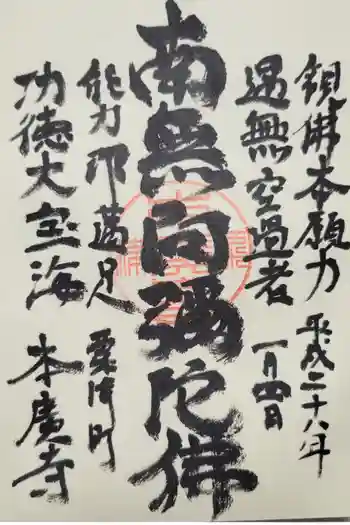 觀佛本願力
平成二十八年
遇無空過者
一月四日
南無阿彌陀佛
能 満足
粟津町
功徳大宝海
本廣寺